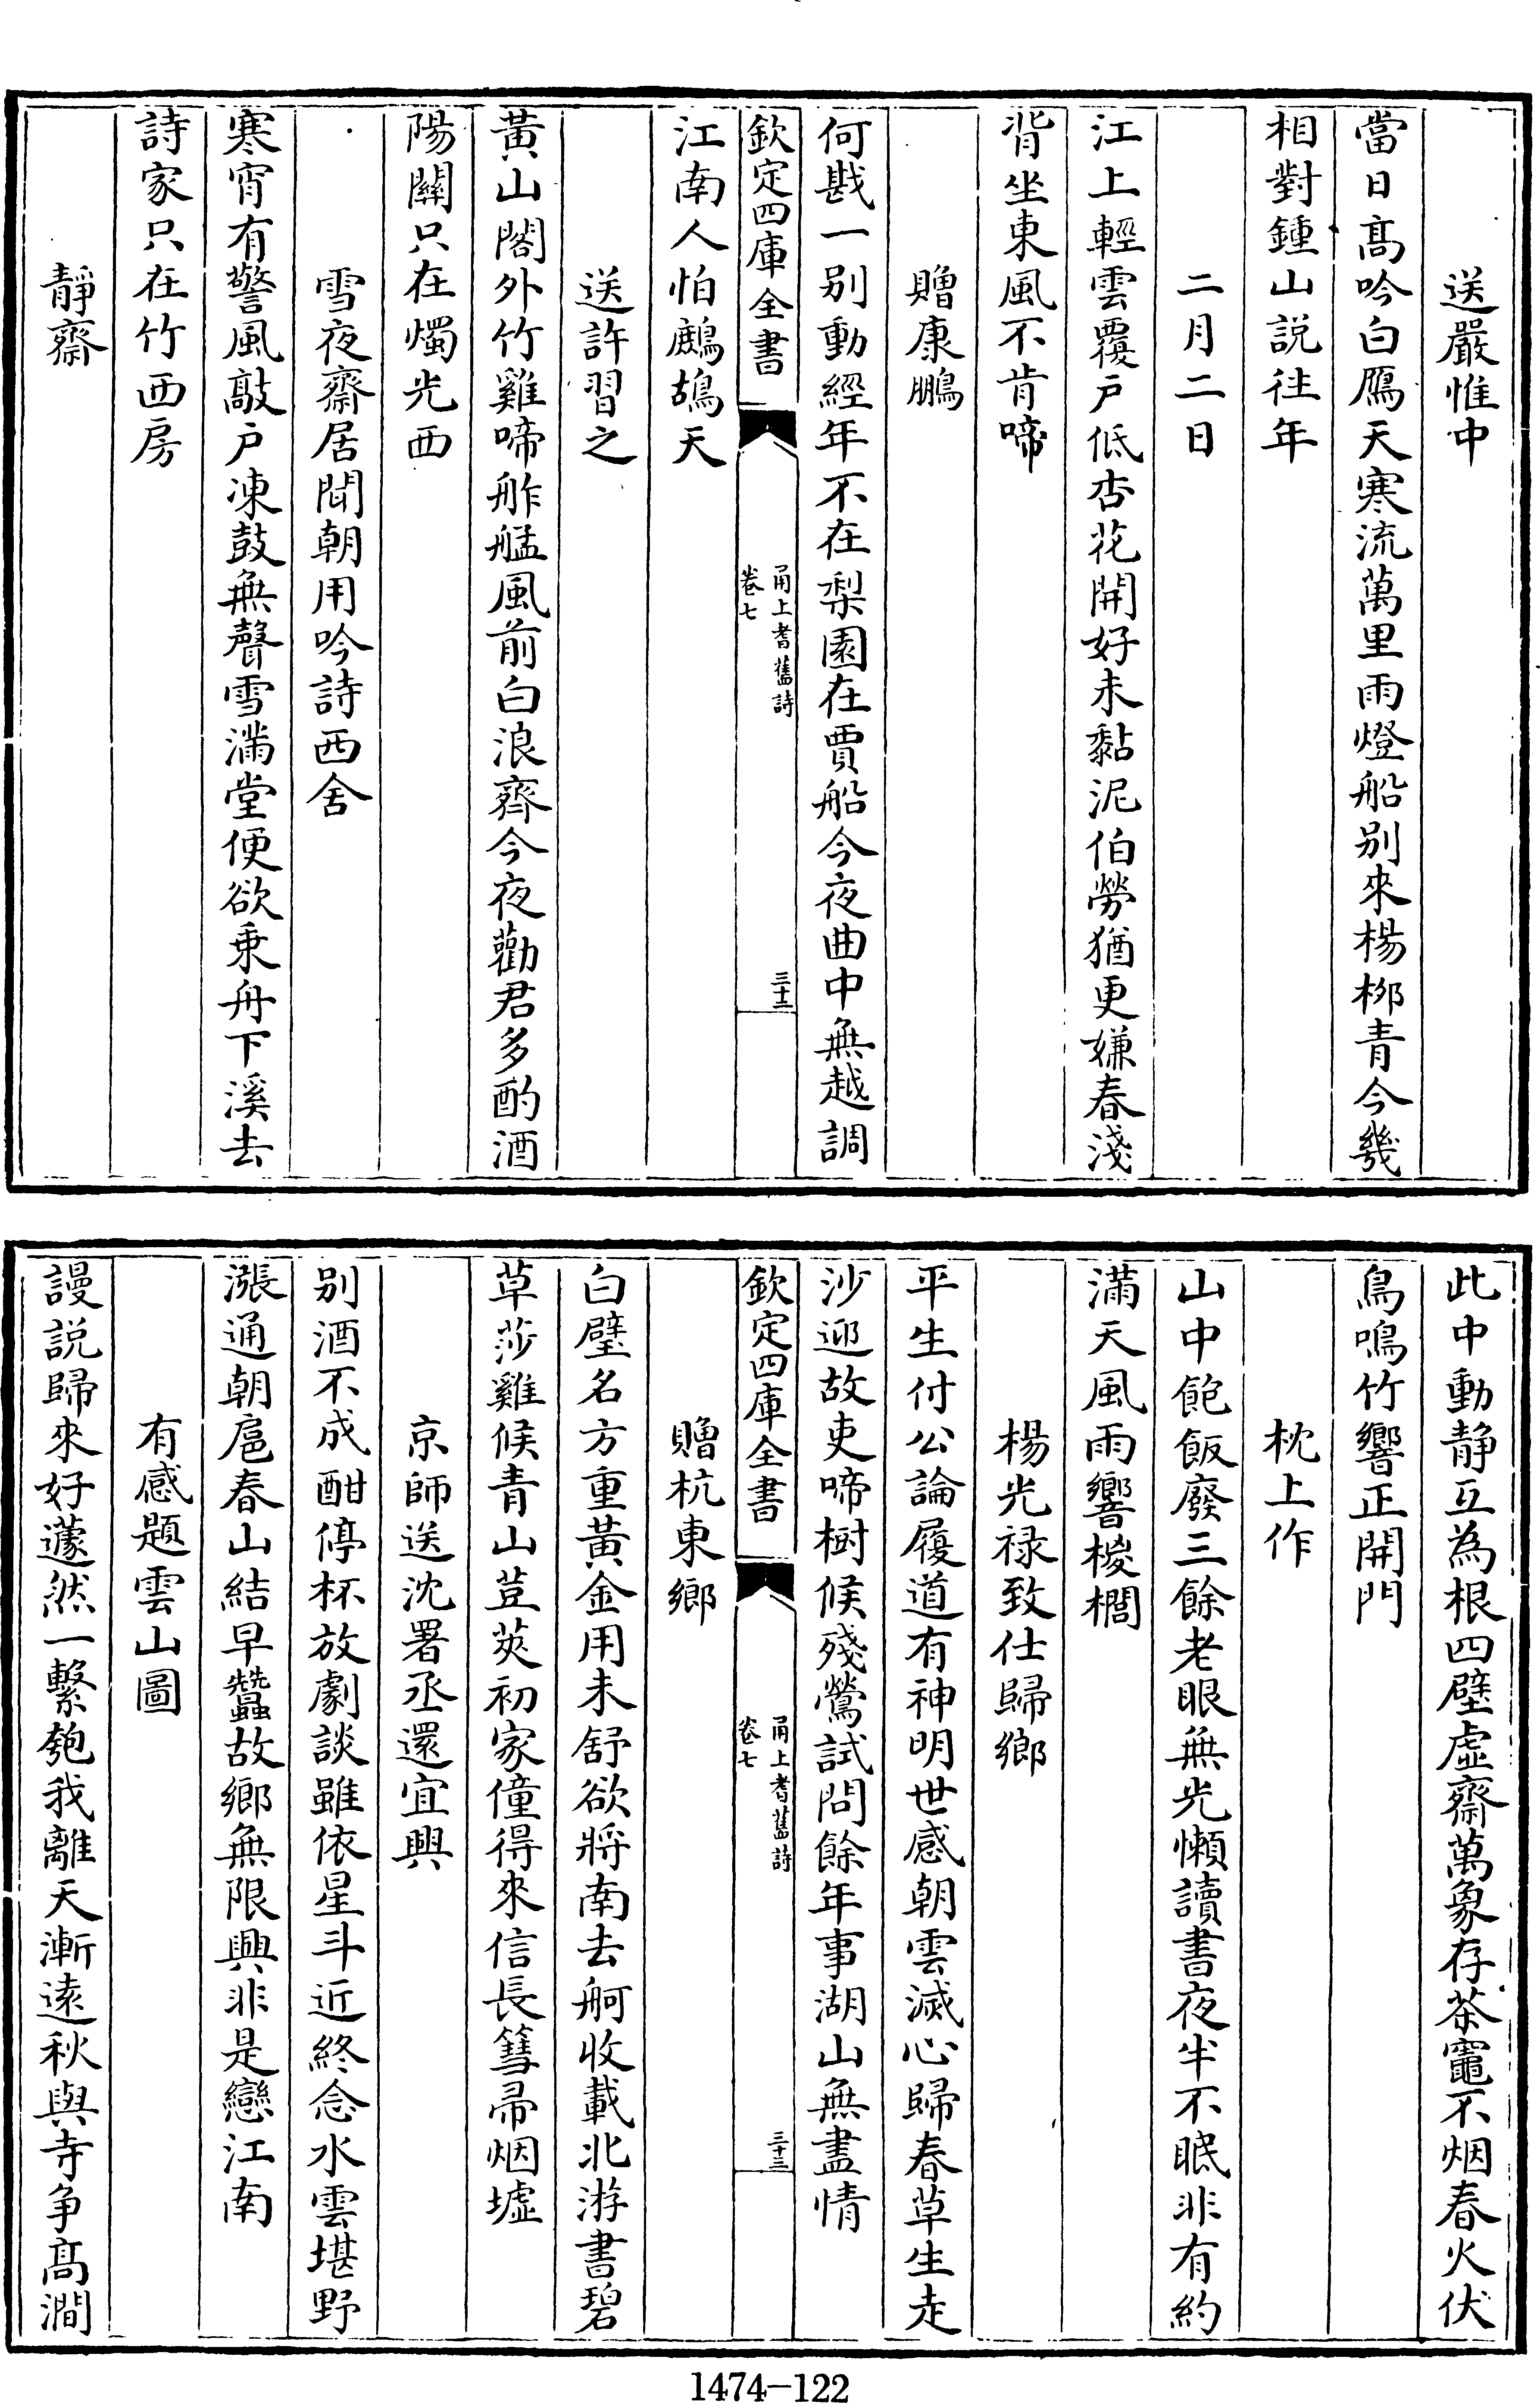 送嚴惟中
當日髙吟白鴈天寒流萬里雨燈船别來楊栁青今幾
相對鍾山説徃年
二月二日
江上輕雲覆户低杏花開好未黏泥伯勞猶更嫌春淺
背坐東風不肯啼
贈康鵬
何戡一别動經年不在梨園在賈船今夜曲中無越調
欽定四庫全書
甬上耆舊詩
卷七
三十二
江南人怕鷓鴣天
送許習之
黃山閣外竹雞啼舴艋風前白浪齊今夜勸君多酌酒
陽關只在燭光西
雪夜齋居聞朝用吟詩西舍
寒宵有警風敲户凍鼓無聲雪滿堂便欲乗舟下溪去
詩家只在竹西房
靜齋
此中動静互為根四壁虚齋萬象存茶竈不烟春火伏
鳥鳴竹響正開門
枕上作
山中飽飯廢三餘老眼無光懶讀書夜半不眠非有約
滿天風雨響椶櫚
楊光禄致仕歸鄉
平生付公論履道有神明世感朝雲滅心歸春草生走
沙迎故吏啼樹候殘鶯試問餘年事湖山無盡情
欽定四庫全書
甬上耆舊詩
卷七
三十三
贈杭東鄉
白璧名方重黃金用未舒欲將南去舸收載北游書碧
草莎雞候青山荳莢初家僮得來信長篲帚烟墟
京師送沈署丞還宜興
别酒不成酣停杯放劇談雖依星斗近終念水雲堪野
漲通朝扈春山結早蠶故鄉無限興非是戀江南
有感題雲山圖
謾説歸來好蘧然一繫匏我離天漸逺秋與寺争髙澗
1474-122